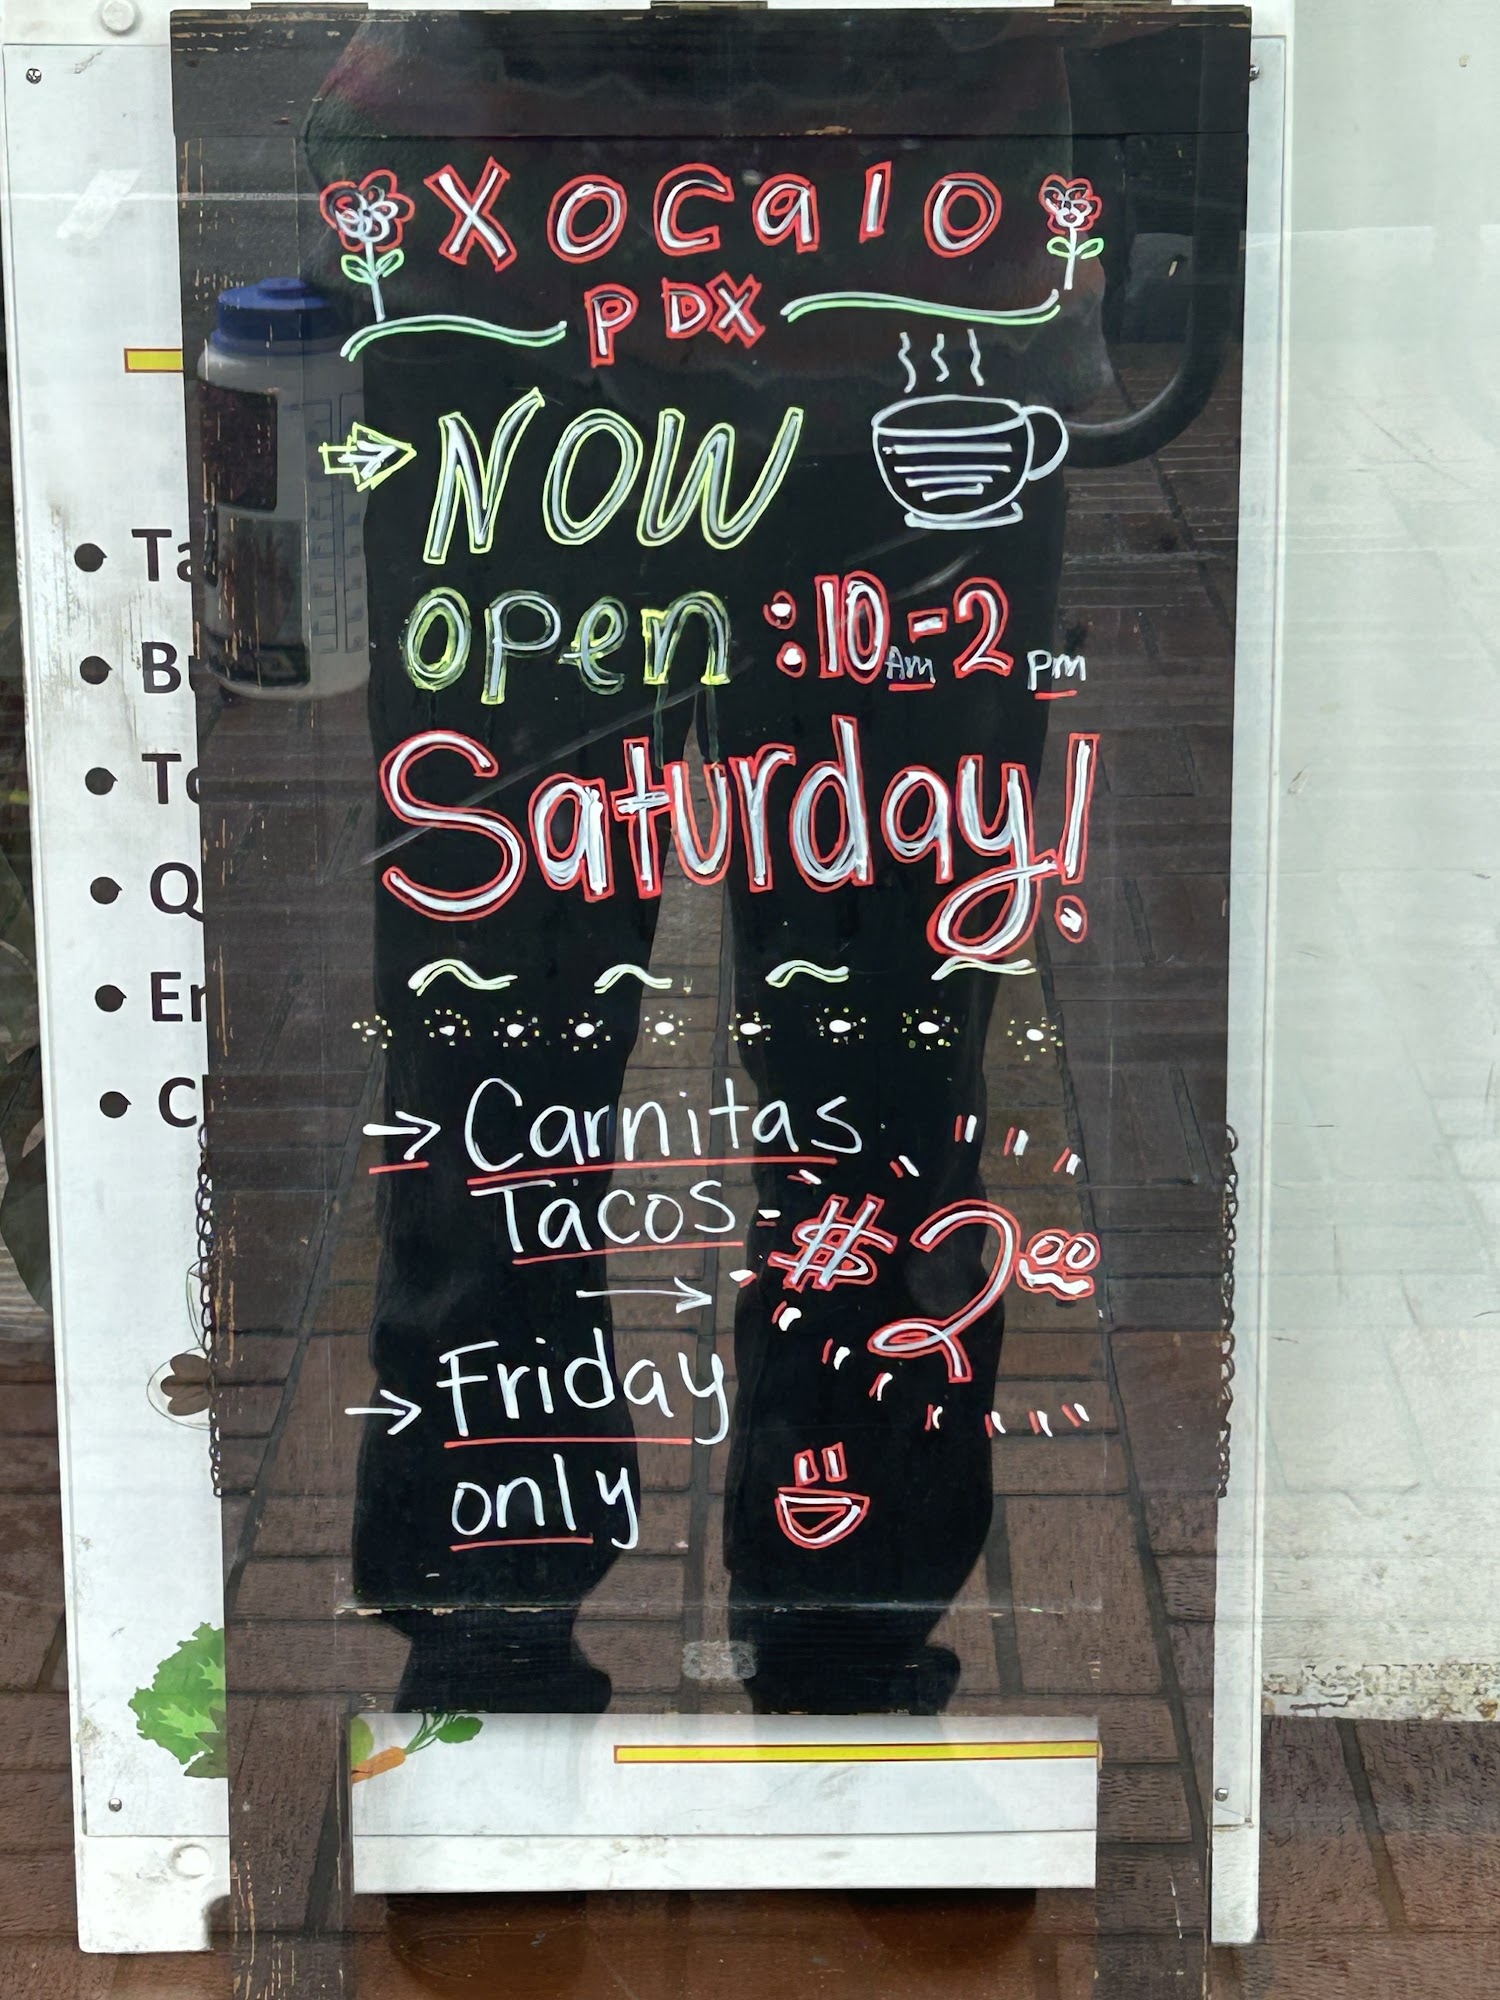 Xocalo
PDX
NOW
open :10AM-2pm
Saturday!
Carnitas
Tacos
$2.00
Friday
only